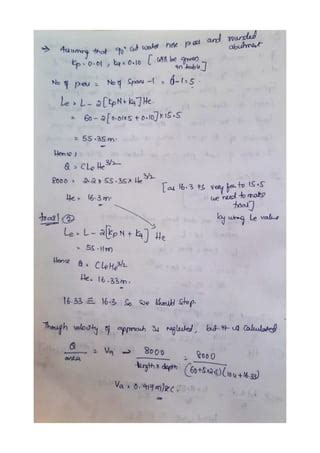 → Assuming that 90° cut water nose piers and rounded abutment
Kp = 0.01 , Ka = 0.10 [ will be given in table ]
No of piers = No of Spans - 1 = 6-1 = 5
Le = L - 2[KpN + Ka] He
= 60 - 2[0.01x5 + 0.10] x 15.5
= 55.35m.
Hence,
Q = CLe He^3/2
8000 = 2.2 x 55.35 x He^3/2
He = 16.3m
[as 16.3 is very far to 15.5
we need to make
trial]
by using Le value
trial ②
Le = L - 2[KpN + Ka] He
= 55.11m
Hence Q = CLeHe^3/2
He = 16.33m.
16.33 ≅ 16.3 So we should stop.
Though velocity of approach is neglected, but it is calculated
Q/area = Va → 8000/(length x depth) = 8000/((60+5x2.5)(104+16.33))
Va = 0.917m/sec.